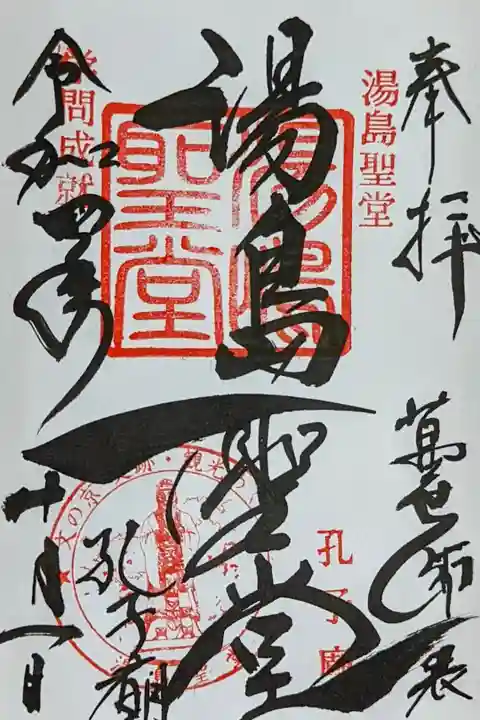 奉拝
萬世師表
湯島聖堂
孔子廟
湯島聖堂
湯島聖堂
孔子廟
学問成就
令和四年
十月一日